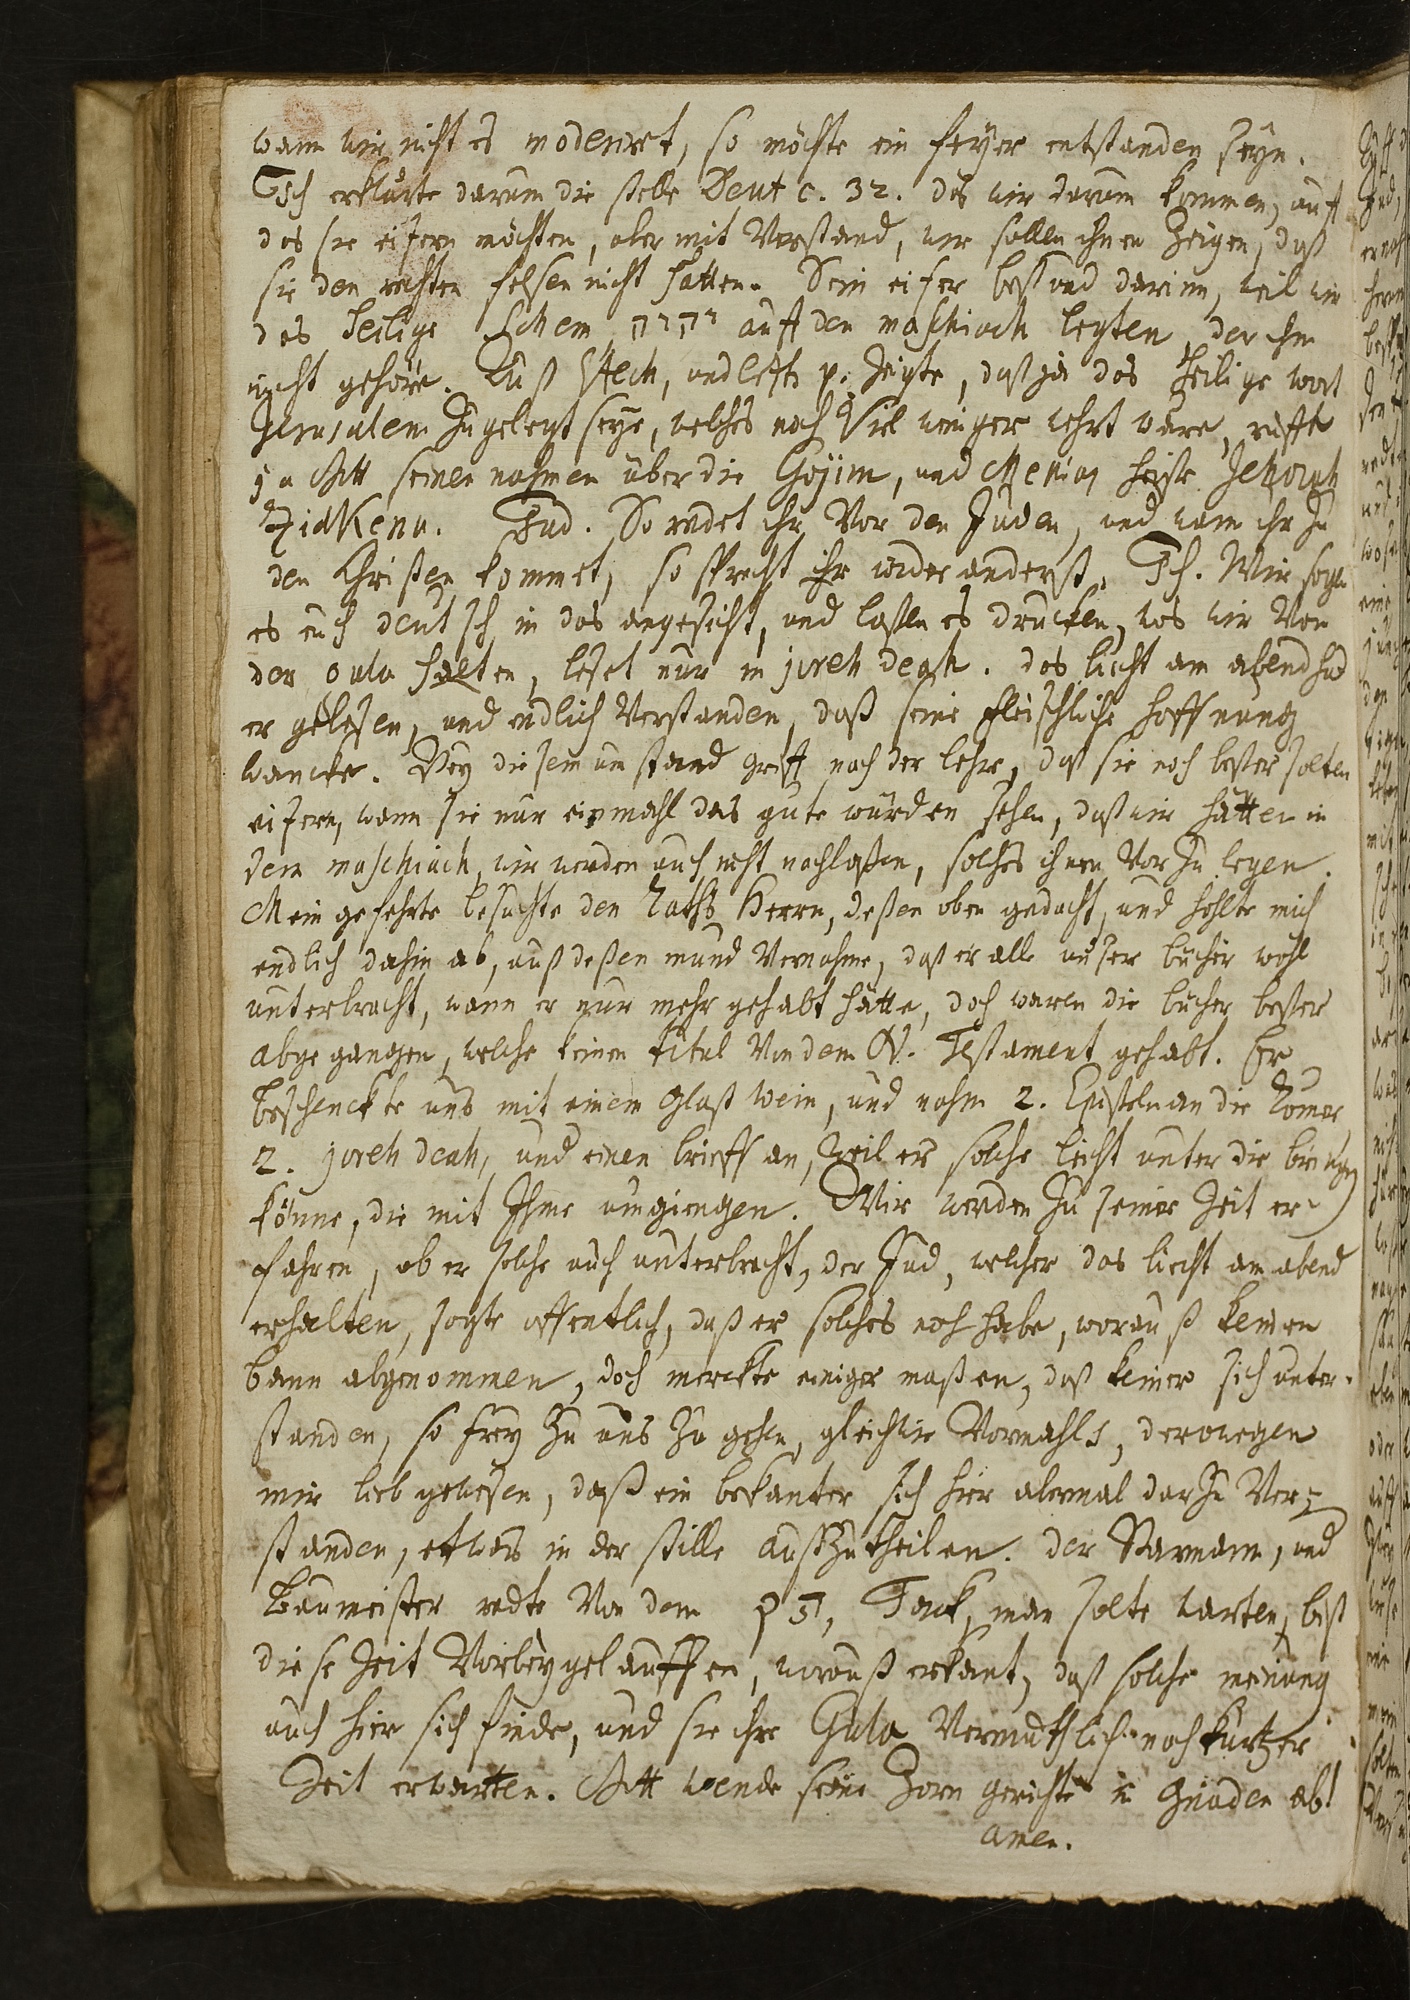 wann wir nicht es moderirt, so möchte ein feyer entstanden seyn.
Ich erklärte darum die stelle Deut c. 32. das wir darum kommen, auff
das sie eifern möchten, aber mit Verstand, wir sollen ihnen Zeigen, daß
sie den rechten felsen nicht hätten. Sein eifer bestund darinn, weil wir
das heilige Schem יהוה auff den maschiach legten, der ihm
nicht gehöre. Auß Ezech, und p. Zeigte, daß ja das heilige wort
Jerusalem Zugelegt seye, welches noch Viel weniger wehrt wäre, ruffte
ja Gott seinen nahmen über die Gojim, und Messias heisse Jehovah
Zidkenu. Jud. So redet ihr Vor den Juden, und wann ihr Zu
den Christen kommet, so sprecht ihr wider anderst. Ich. Wir sagen
es euch deutsch in das angesicht, und laßen es drucken, was wir Von
der oula halten, leset nur in joreh deah. das liecht am abend had
er gelesen, und endlich Verstanden, daß seine fleischliche hoffnung
wancke. Bey diesem umstand griff nach der lehre, daß sie noch besser solten
eifern, wann sie nur einmahl das gute würden sehen, daß wir hätten in
dem maschiach, wir werden auch nicht nachlaßen, solches ihnen Vor Zu legen.
Mein gefehrte besuchte den Raths Herrn, deßen oben gedacht, und hohlte mich
endlich dahin ab, auß deßen mund Vernahme, daß er alle unser bücher wohl
unterbracht, wann er nur mehr gehabt hätte, doch waren die bücher besser
abgegangen, welche keinen titul Von dem N. Testament gehabt. Er
beschenckte uns mit einem glaß wein, und nahm 2. Episteln an die Römer
2. joreh deah, und einen brieff an, weil er solche leicht unter die bringen
könne, die mit Ihme umgiengen. Wir werden Zu seiner Zeit er-
fahren, ob er solche auch unterbracht, der Jud, welcher das liecht am abend
erhalten, sagte offentlich, daß er solches noch habe, worauß keinen
bann abgenommen, doch merckte einiger maßen, daß keiner sich unter-
standen, so frey Zu uns Zu gehen, gleichwie Vormahls, derowegen
mir lieb gewesen, daß ein bekanter sich hier abermal darZu Ver-
standen, etwas in der stille auß Zu theilen. Der Parnass, und
Baumeister redte Von dem קץ, Tack, man solte warten, biß
diese Zeit Vorbey gelauffen, worauß erkant, daß solche meinung
auch hier sich finde, und sie ihre Gula Vermuthlich nach kurtzer
Zeit erwarten. Gott wende seine Zorn gerichte in Gnaden ab!
amen.